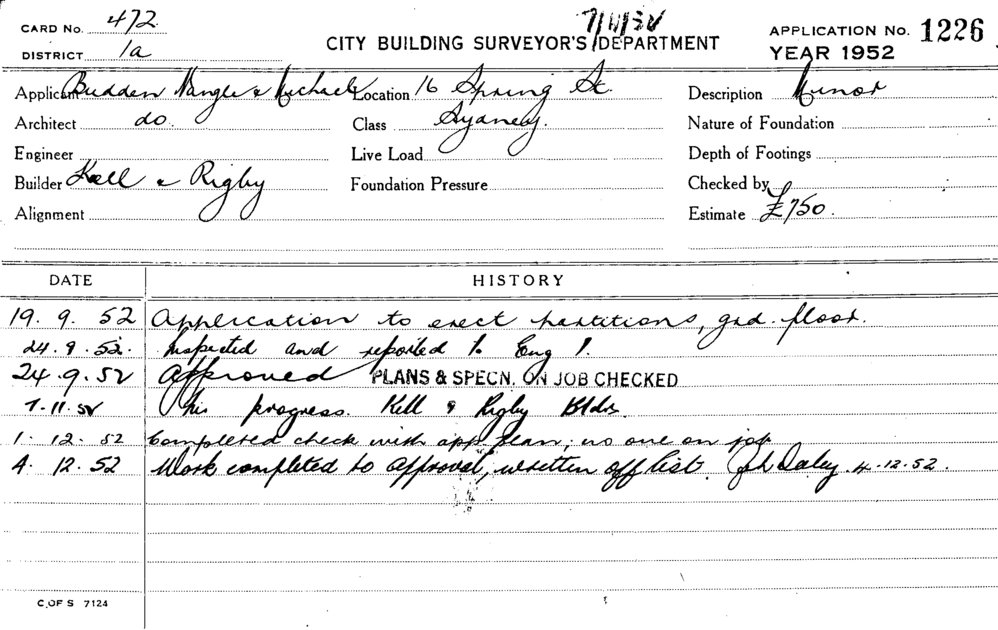 CARD No. 472
7/11/52
APPLICATION No. 1226
DISTRICT 1a
CITY BUILDING SURVEYOR'S DEPARTMENT
YEAR 1952
Applicant Budden Nangle & Michael Location 16 Spring St. Description Minor
Architect do. Class Sydney. Nature of Foundation
Engineer Live Load Depth of Footings
Builder Kell & Rigby Foundation Pressure Checked by
Alignment Estimate £750.
DATE HISTORY
19. 9. 52 Application to erect partitions, grd. floor.
24.9.52. Inspected and reported to Eng
24.9.52 Approved PLANS & SPECN. ON JOB CHECKED
7.11.52 progress. Kell & Rigby Bldrs.
1. 12. 52 Completed check with app. plan; no one on job
4. 12. 52 Work completed to approval, written off list. Daley 4.12.52.
C. OF S 7124